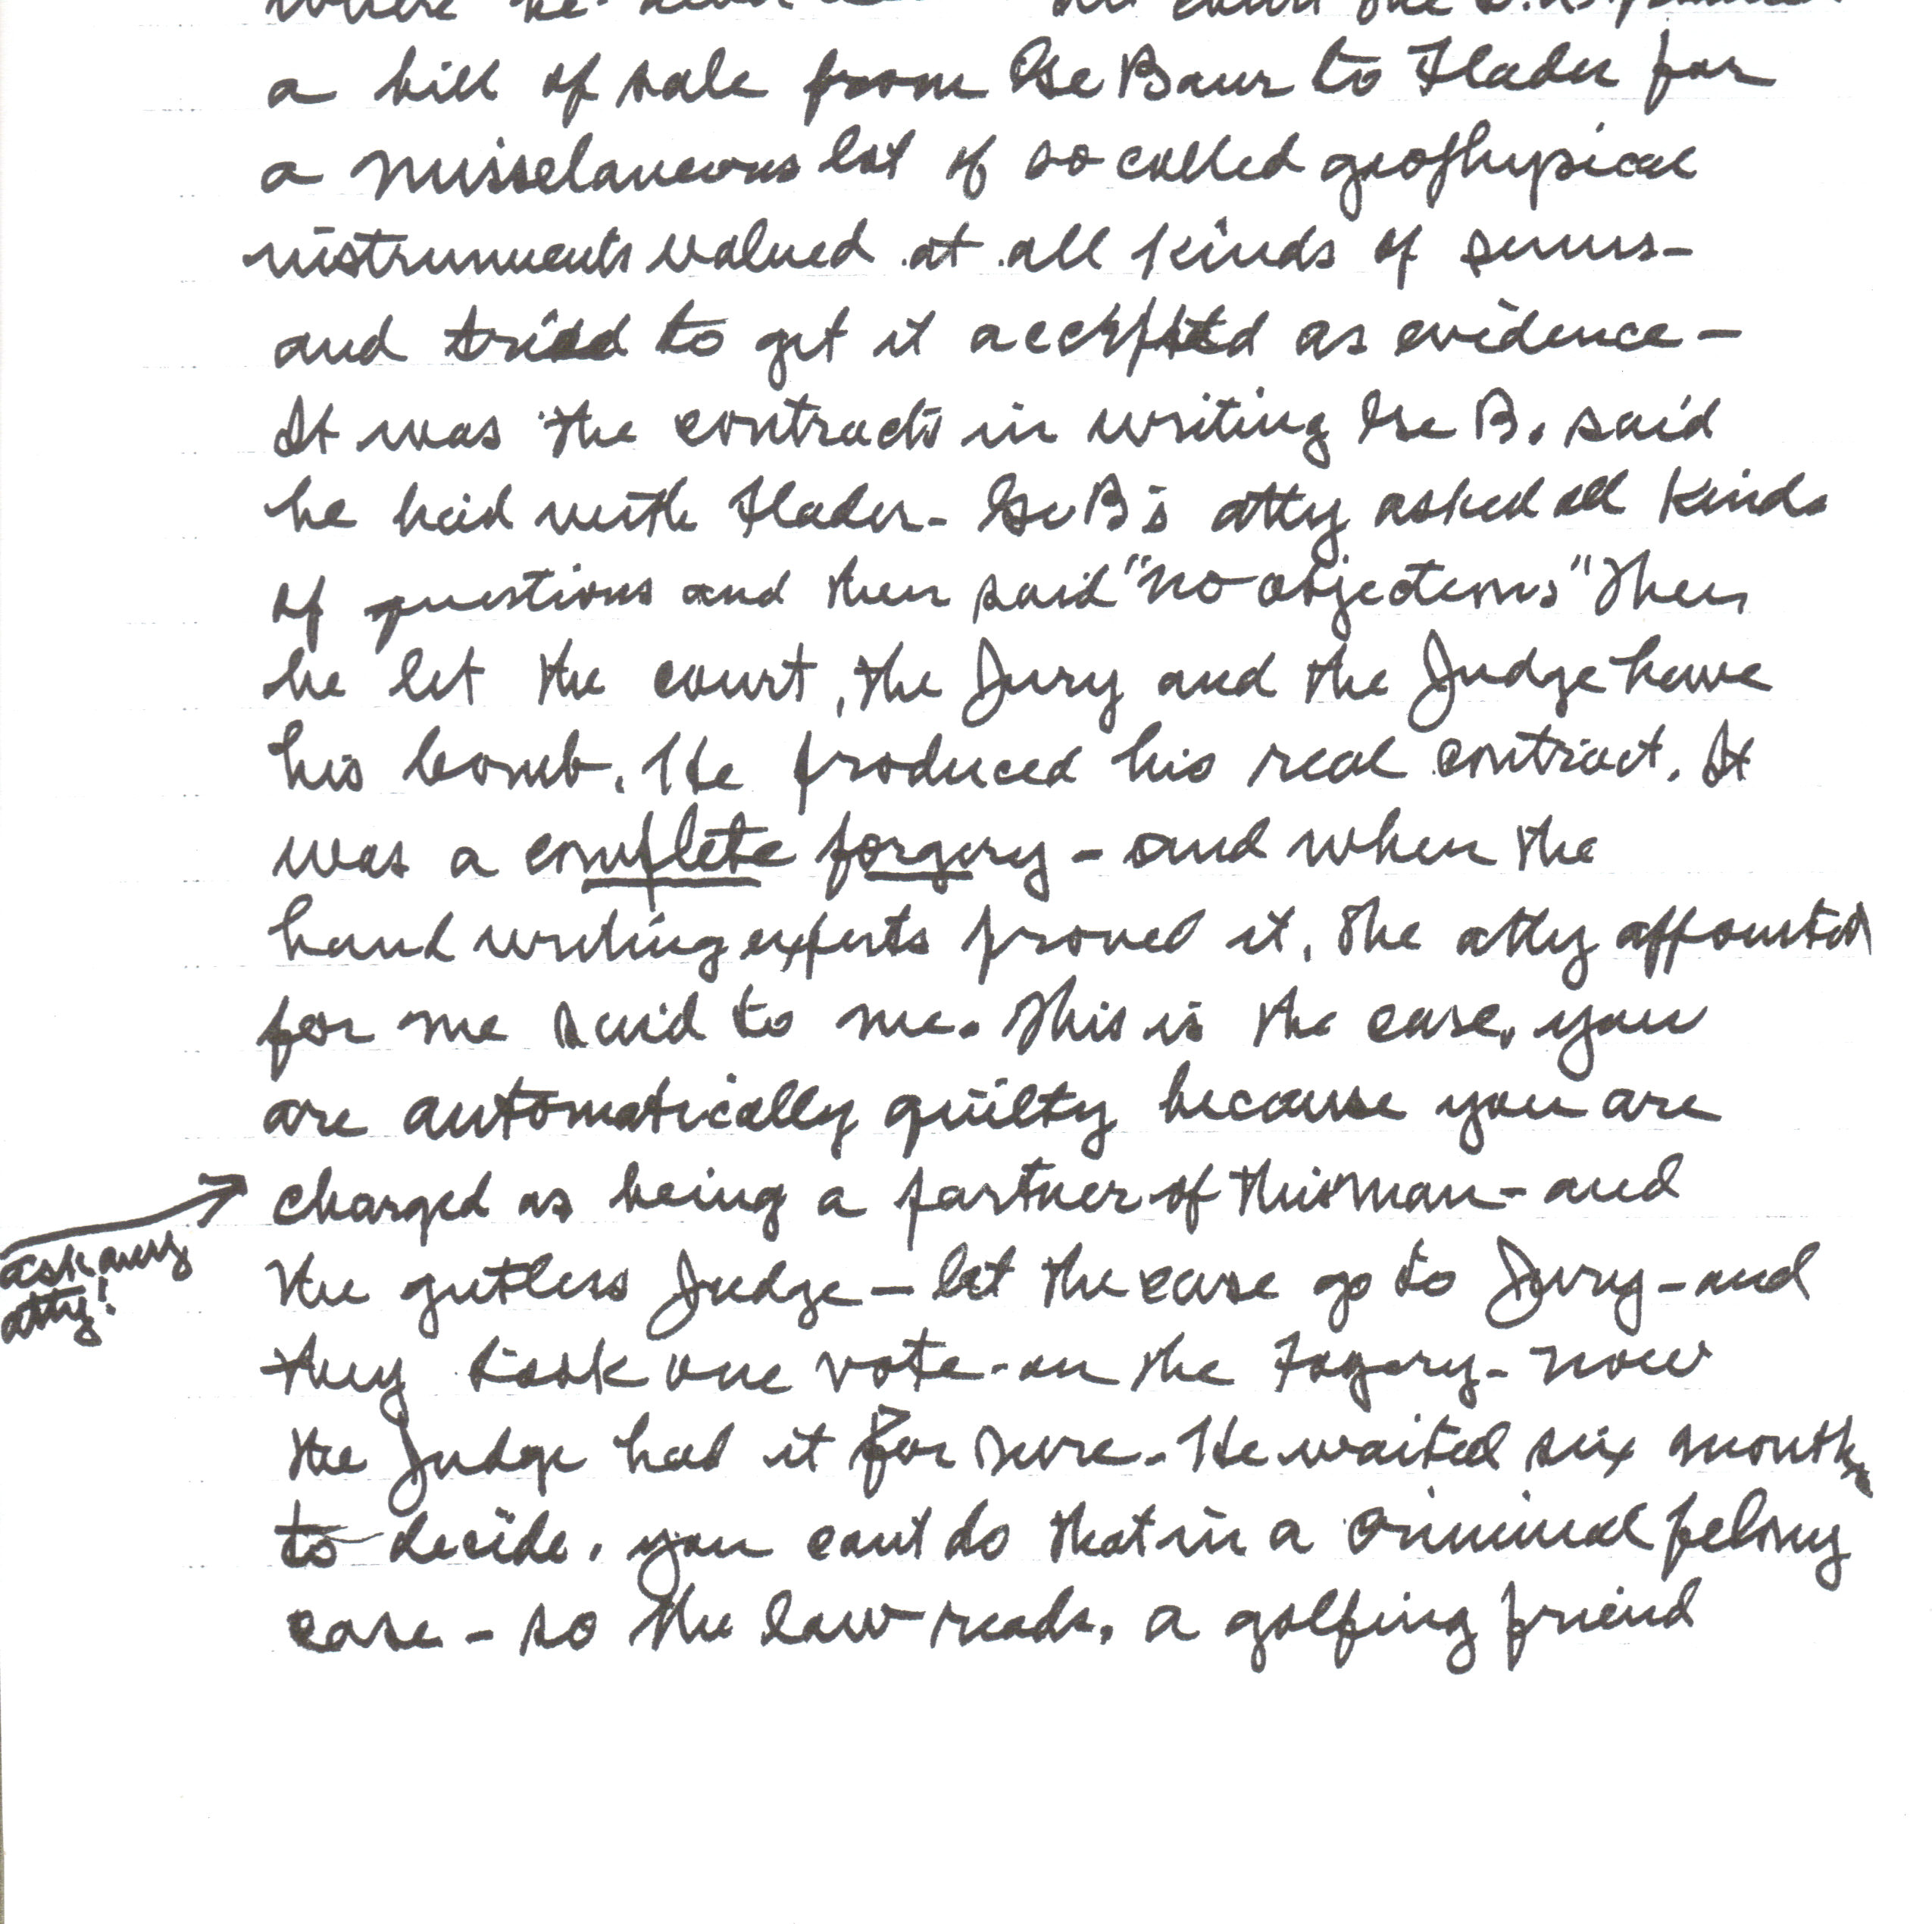 a bill of sale from GeBaur to Flader for
a misselaneous lot of so called geophysical
instruments valued at all kinds of sums-
and tried to get it accepted as evidence-
It was the contracts in writing Ge B. said
he had with Flader- GeB's atty asked all kinds
of questions and then said "no objections" Then
he let the court, the Jury and the Judge have
his bomb. He produced his real contract. It
was a complete forgery - and when the
hand writing experts proved it, the atty appointed
for me said to me. This is the case, you
are automatically guilty because you are
charged as being a partner of this man- and
ask any
atty!
the gutless Judge - let the case go to Jury - and
they took one vote - on the Fogery - now
the Judge had it for sure. He waited six months
to decide, you cant do that in a criminal felony
case - so the law reads. a golfing friend